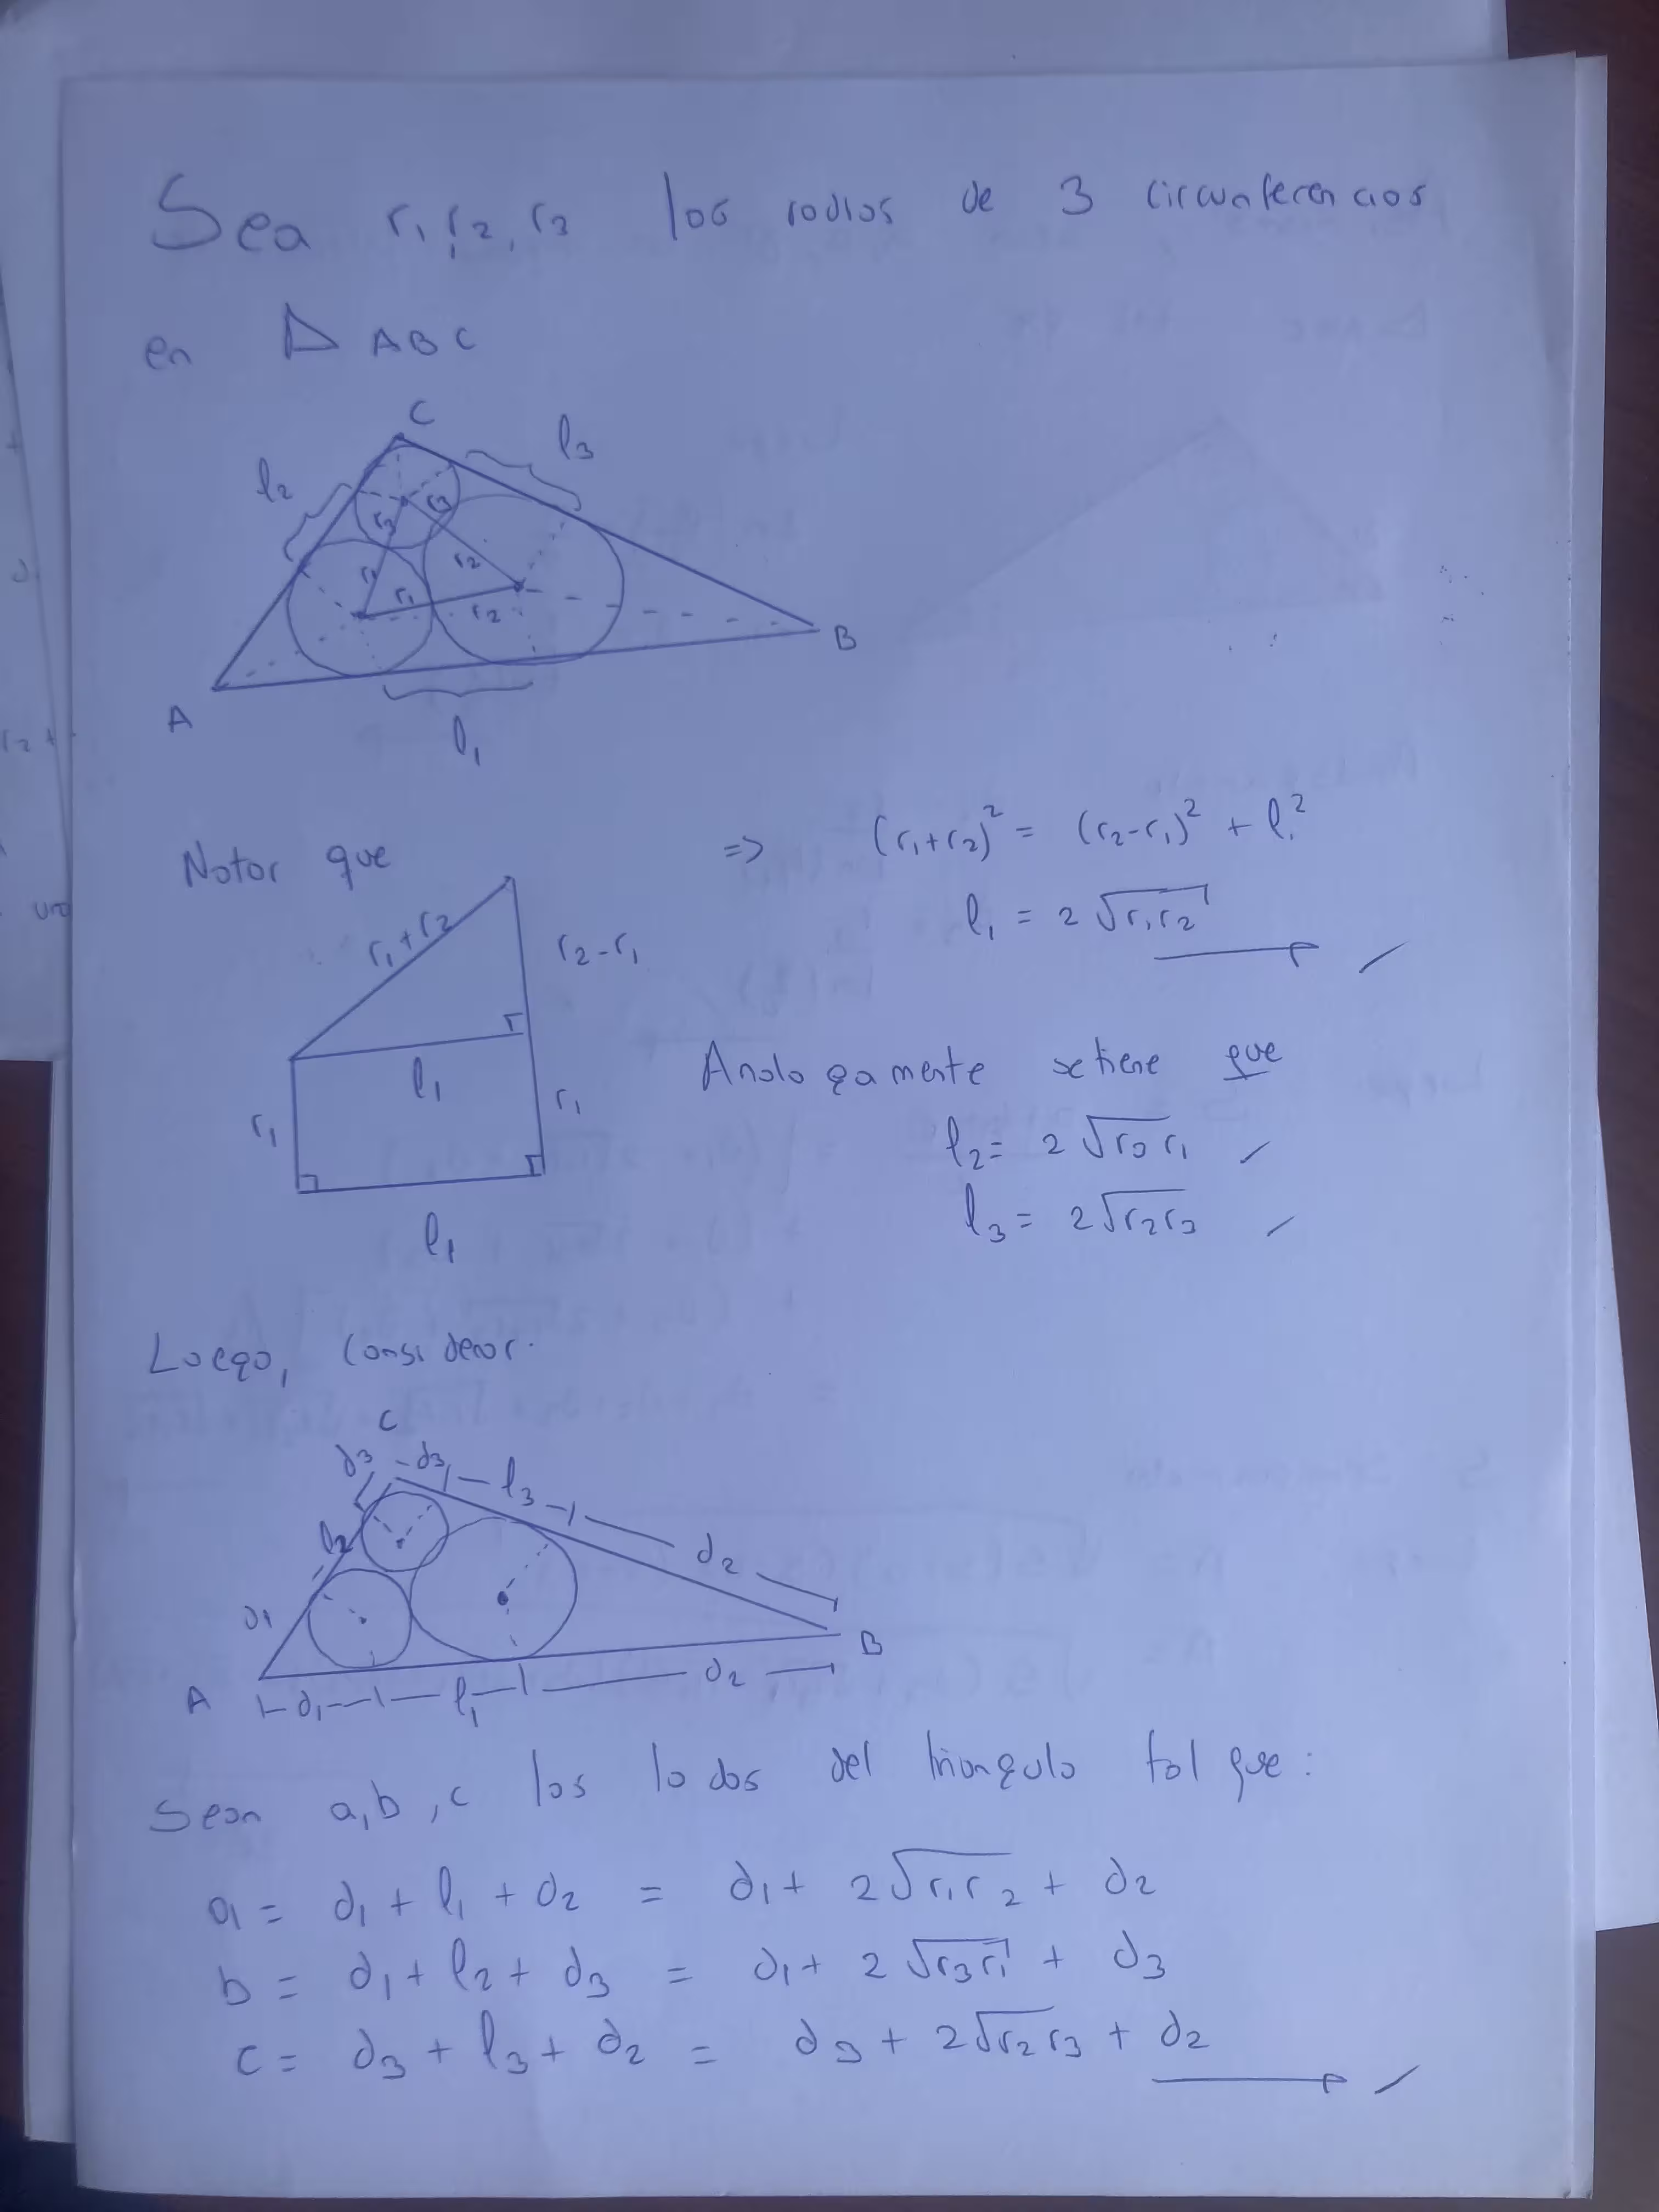 Sea r₁, r₂, r₃ los radios de 3 circunferencias
en △ ABC
C
l₂
l₃
r₃ r₃
r₁ r₂
r₁ r₂
A
B
l₁
Notar que
=> (r₁+r₂)² = (r₂-r₁)² + l₁²
l₁ = 2 √r₁r₂ ✓
r₁+r₂
r₂-r₁
l₁
r₁
r₁
l₁
Analogamente se tiene que
l₂ = 2 √r₃ r₁ ✓
l₃ = 2 √r₂r₃ ✓
Luego, considerar.
C
d₃ d₃ l₃
l₂
d₂
d₁
A
B
d₁ l₁ d₂
Sean a, b, c los lados del triangulo tal que:
a = d₁ + l₁ + d₂ = d₁ + 2√r₁r₂ + d₂
b = d₁ + l₂ + d₃ = d₁ + 2 √r₃r₁ + d₃
c = d₃ + l₃ + d₂ = d₃ + 2√r₂r₃ + d₂ ✓